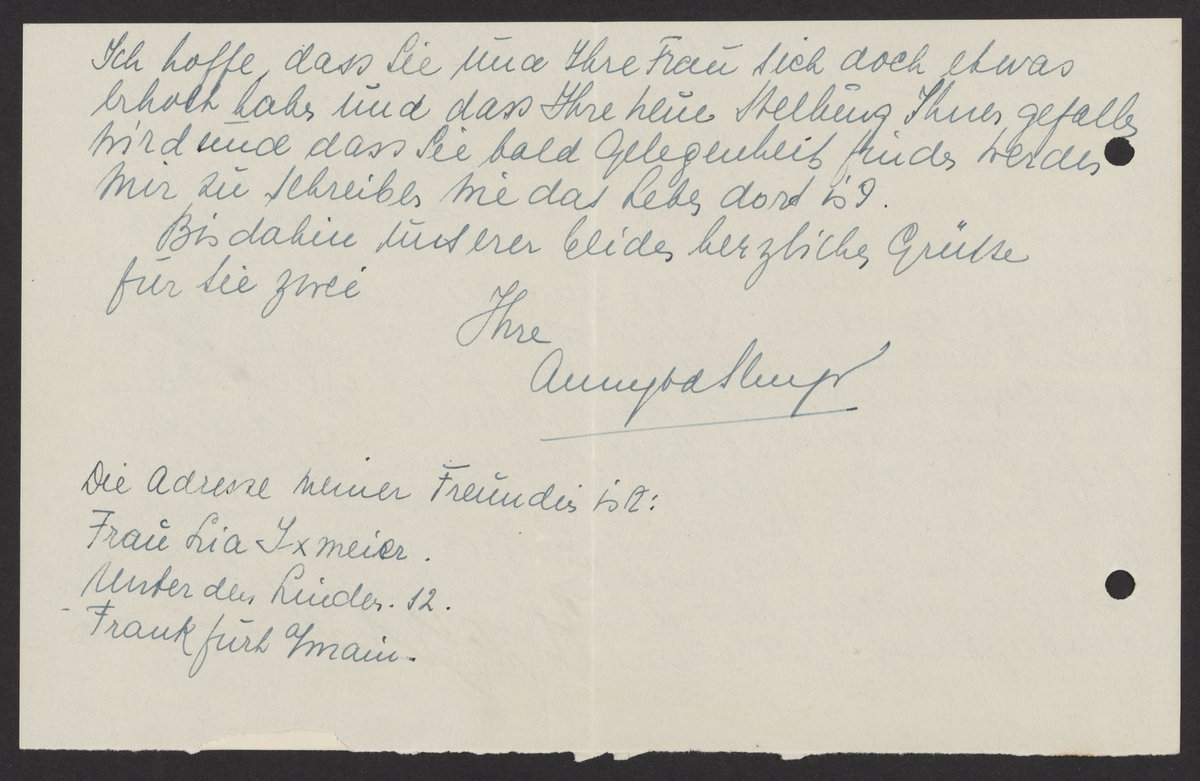 Ich hoffe, dass Sie und Ihre Frau sich doch etwas
erholt haben und dass Ihre neue Stellung Ihnen gefallen
wird und dass Sie bald Gelegenheit finden werden
mir zu schreiben wie das Leben dort ist.
Bis dahin unserer beiden herzlichen Grüsse
für Sie zwei
Ihre
Die Adresse meiner Freundin ist:
Frau Lia Ixmeier.
Unter den Linden. 12.
Frankfurt a/main.